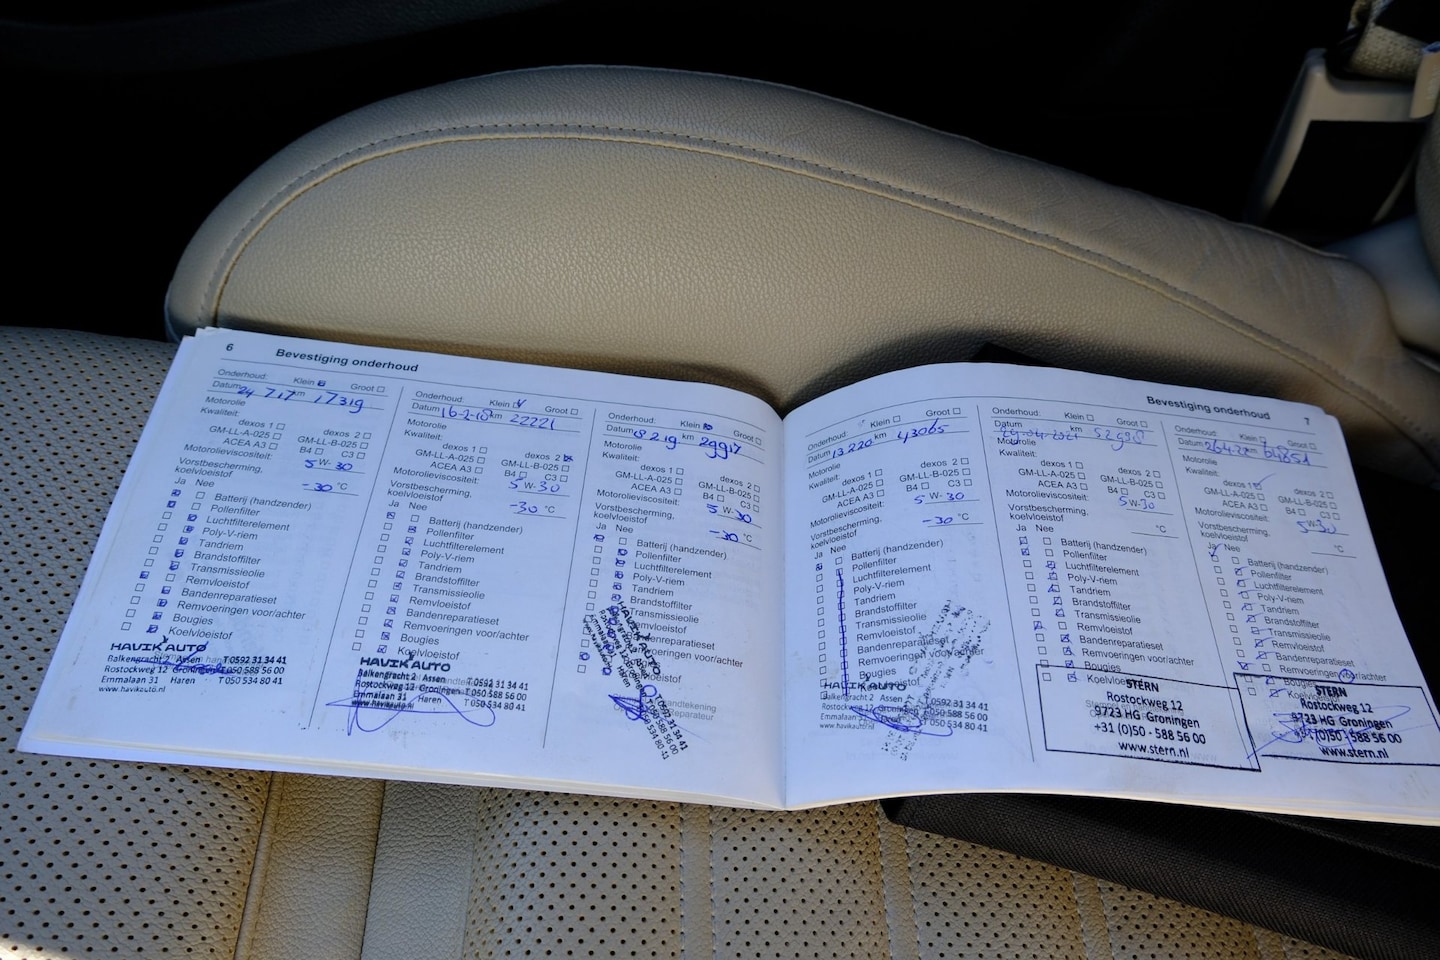 6 Bevestiging onderhoud
Onderhoud: Klein Groot
Datum 24 7 17 km 17319
Motorolie
Kwaliteit:
dexos 1 dexos 2
GM-LL-A-025 GM-LL-B-025
ACEA A3 B4 C3
Motorolieviscositeit: 5 W-30
Vorstbescherming,
koelvloeistof -30 °C
Ja Nee
Batterij (handzender)
Pollenfilter
Luchtfilterelement
Poly-V-riem
Tandriem
Brandstoffilter
Transmissieolie
Remvloeistof
Bandenreparatieset
Remvoeringen voor/achter
Bougies
Koelvloeistof
HAVIK AUTO
Balkengracht 2 Assen T 0592 31 34 41
Rostockweg 12 Groningen T 050 588 56 00
Emmalaan 31 Haren T 050 534 80 41
www.havikauto.nl
Onderhoud: Klein Groot
Datum 16-2-18 km 22221
Motorolie
Kwaliteit:
dexos 1 dexos 2
GM-LL-A-025 GM-LL-B-025
ACEA A3 B4 C3
Motorolieviscositeit: 5 W-30
Vorstbescherming,
koelvloeistof -30 °C
Ja Nee
Batterij (handzender)
Pollenfilter
Luchtfilterelement
Poly-V-riem
Tandriem
Brandstoffilter
Transmissieolie
Remvloeistof
Bandenreparatieset
Remvoeringen voor/achter
Bougies
Koelvloeistof
HAVIK AUTO
Balkengracht 2 Assen T 0592 31 34 41
Rostockweg 12 Groningen T 050 588 56 00
Emmalaan 31 Haren T 050 534 80 41
www.havikauto.nl
Onderhoud: Klein Groot
Datum 18 2 19 km 29917
Motorolie
Kwaliteit:
dexos 1 dexos 2
GM-LL-A-025 GM-LL-B-025
ACEA A3 B4 C3
Motorolieviscositeit: 5 W-30
Vorstbescherming,
koelvloeistof -30 °C
Ja Nee
Batterij (handzender)
Pollenfilter
Luchtfilterelement
Poly-V-riem
Tandriem
Brandstoffilter
Transmissieolie
Remvloeistof
Bandenreparatieset
Remvoeringen voor/achter
HAVIK AUTO
Bevestiging onderhoud 7
Onderhoud: Klein Groot
Datum 13 220 km 43065
Motorolie
Kwaliteit:
dexos 1 dexos 2
GM-LL-A-025 GM-LL-B-025
ACEA A3 B4 C3
Motorolieviscositeit: 5 W-30
Vorstbescherming,
koelvloeistof -30 °C
Ja Nee
Batterij (handzender)
Pollenfilter
Luchtfilterelement
Poly-V-riem
Tandriem
Brandstoffilter
Transmissieolie
Remvloeistof
Bandenreparatieset
Remvoeringen voor/achter
Bougies
HAVIK AUTO
Balkengracht 2 Assen T 0592 31 34 41
Rostockweg 12 Groningen T 050 588 56 00
Emmalaan 31 Haren T 050 534 80 41
www.havikauto.nl
Onderhoud: Klein Groot
Datum 29-04-2021 km
Motorolie
Kwaliteit:
dexos 1 dexos 2
GM-LL-A-025 GM-LL-B-025
ACEA A3 B4 C3
Motorolieviscositeit: 5 W-30
Vorstbescherming,
koelvloeistof °C
Ja Nee
Batterij (handzender)
Pollenfilter
Luchtfilterelement
Poly-V-riem
Tandriem
Brandstoffilter
Transmissieolie
Remvloeistof
Bandenreparatieset
Remvoeringen voor/achter
Bougies
Koelvloeistof
STERN
Rostockweg 12
9723 HG Groningen
+31 (0)50 - 588 56 00
www.stern.nl
Onderhoud: Klein Groot
Datum km 64851
Motorolie
Kwaliteit:
dexos 1 dexos 2
GM-LL-A-025 GM-LL-B-025
ACEA A3 B4 C3
Motorolieviscositeit: 5 W-30
Vorstbescherming,
koelvloeistof °C
Ja Nee
Batterij (handzender)
Pollenfilter
Luchtfilterelement
Poly-V-riem
Tandriem
Brandstoffilter
Transmissieolie
Remvloeistof
Bandenreparatieset
Remvoeringen voor/achter
Bougies
Koelvloeistof
STERN
Rostockweg 12
9723 HG Groningen
+31 (0)50 - 588 56 00
www.stern.nl